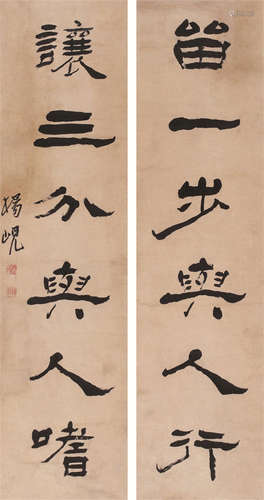 畱一步與人行
讓三分與人嗜
楊峴